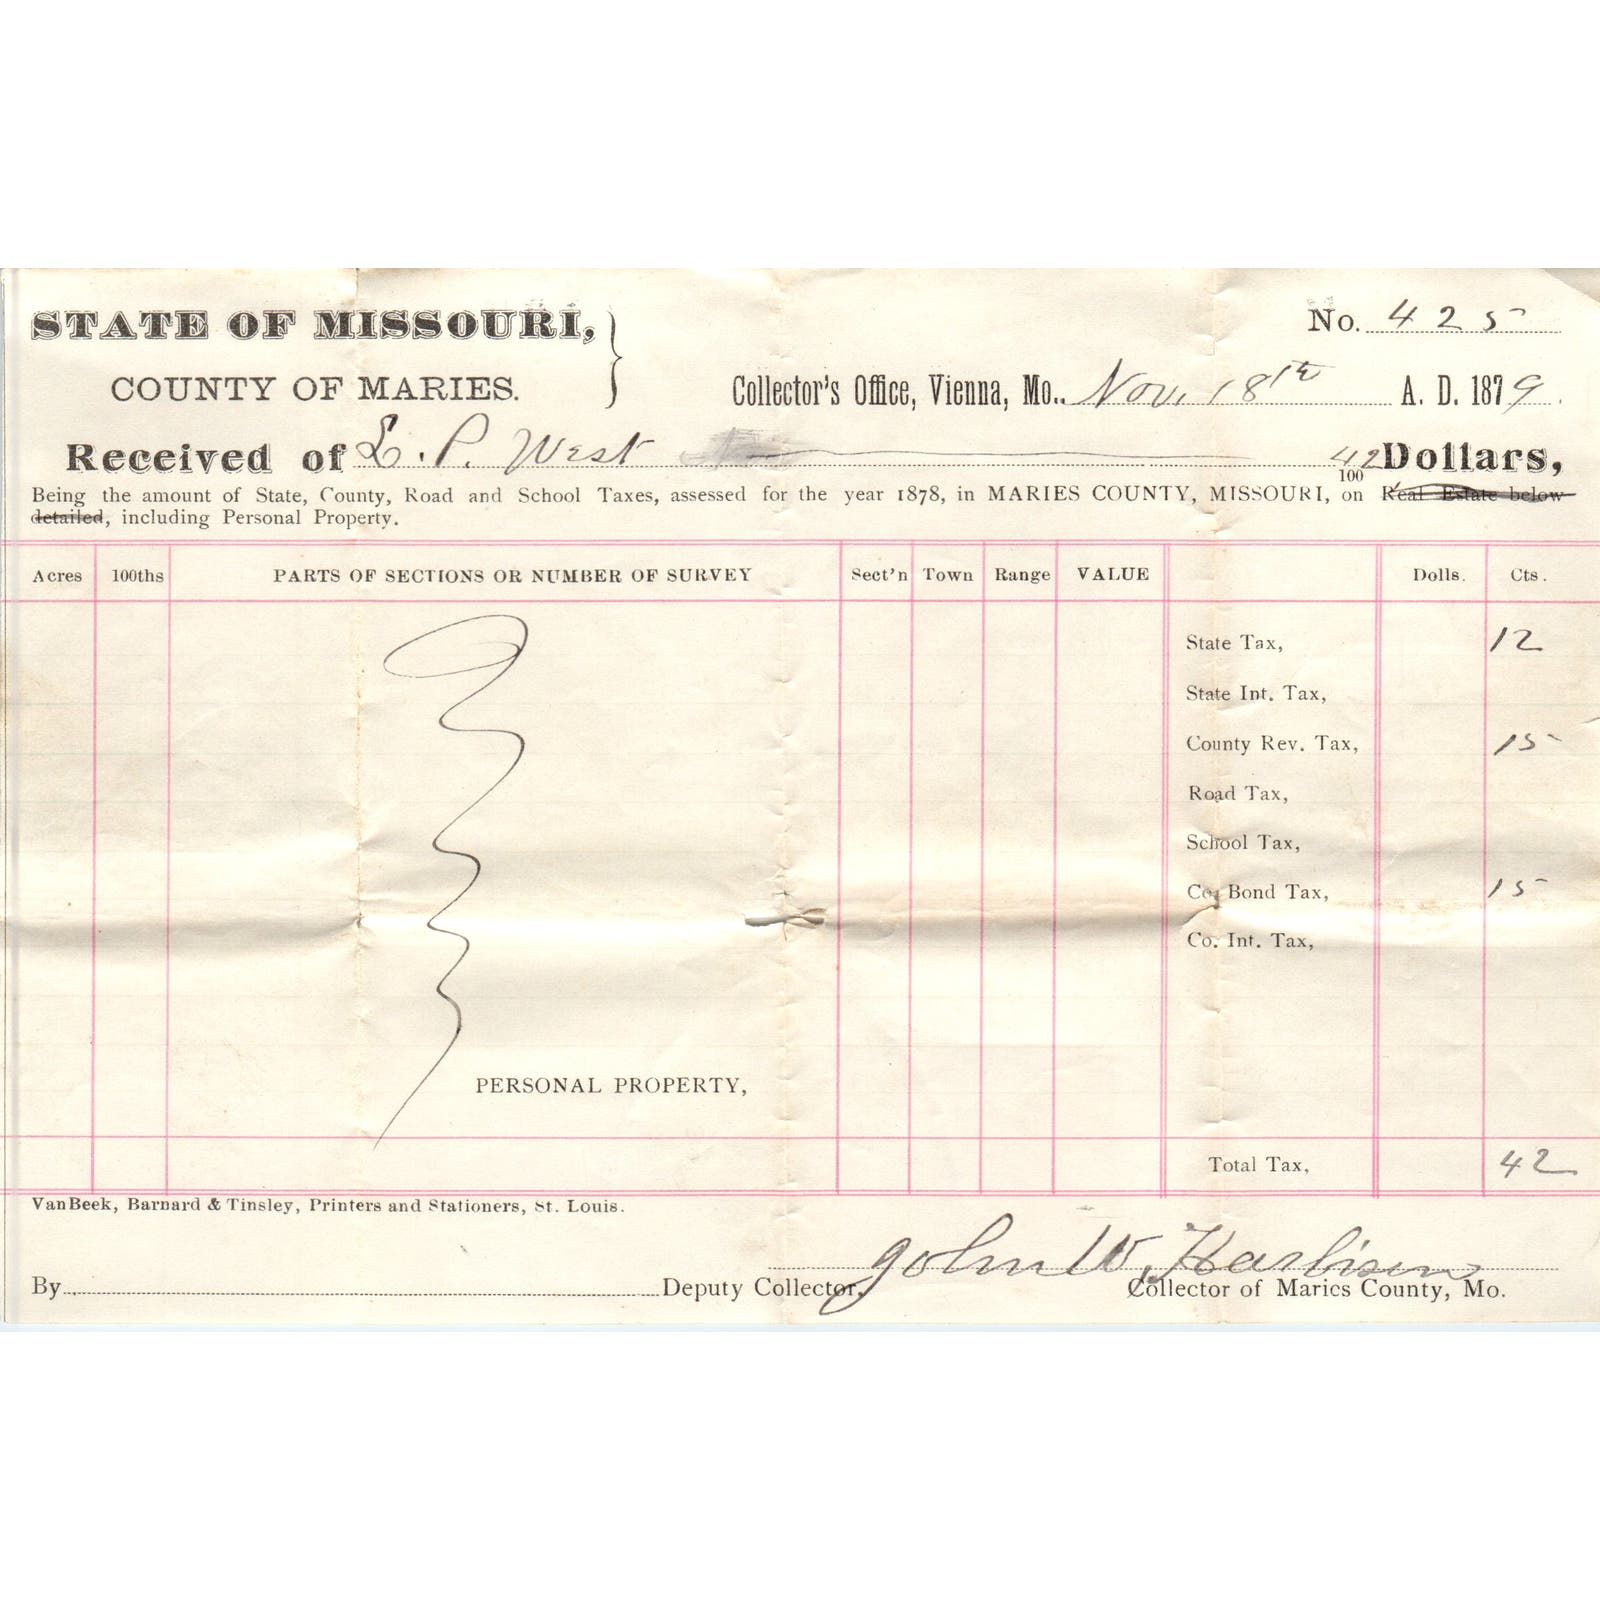 STATE OF MISSOURI,
COUNTY OF MARIES.
No. 425
Collector's Office, Vienna, Mo., Nov. 18th A. D. 1879.
Received of L. P. West 42/100 Dollars,
Being the amount of State, County, Road and School Taxes, assessed for the year 1878, in MARIES COUNTY, MISSOURI, on Real Estate below
detailed, including Personal Property.
Acres 100ths PARTS OF SECTIONS OR NUMBER OF SURVEY Sect'n Town Range VALUE Dolls. Cts.
State Tax, 12
State Int. Tax,
County Rev. Tax, 15
Road Tax,
School Tax,
Co. Bond Tax, 15
Co. Int. Tax,
PERSONAL PROPERTY,
Total Tax, 42
VanBeek, Barnard & Tinsley, Printers and Stationers, St. Louis.
John W. Harbison
By Deputy Collector. Collector of Maries County, Mo.